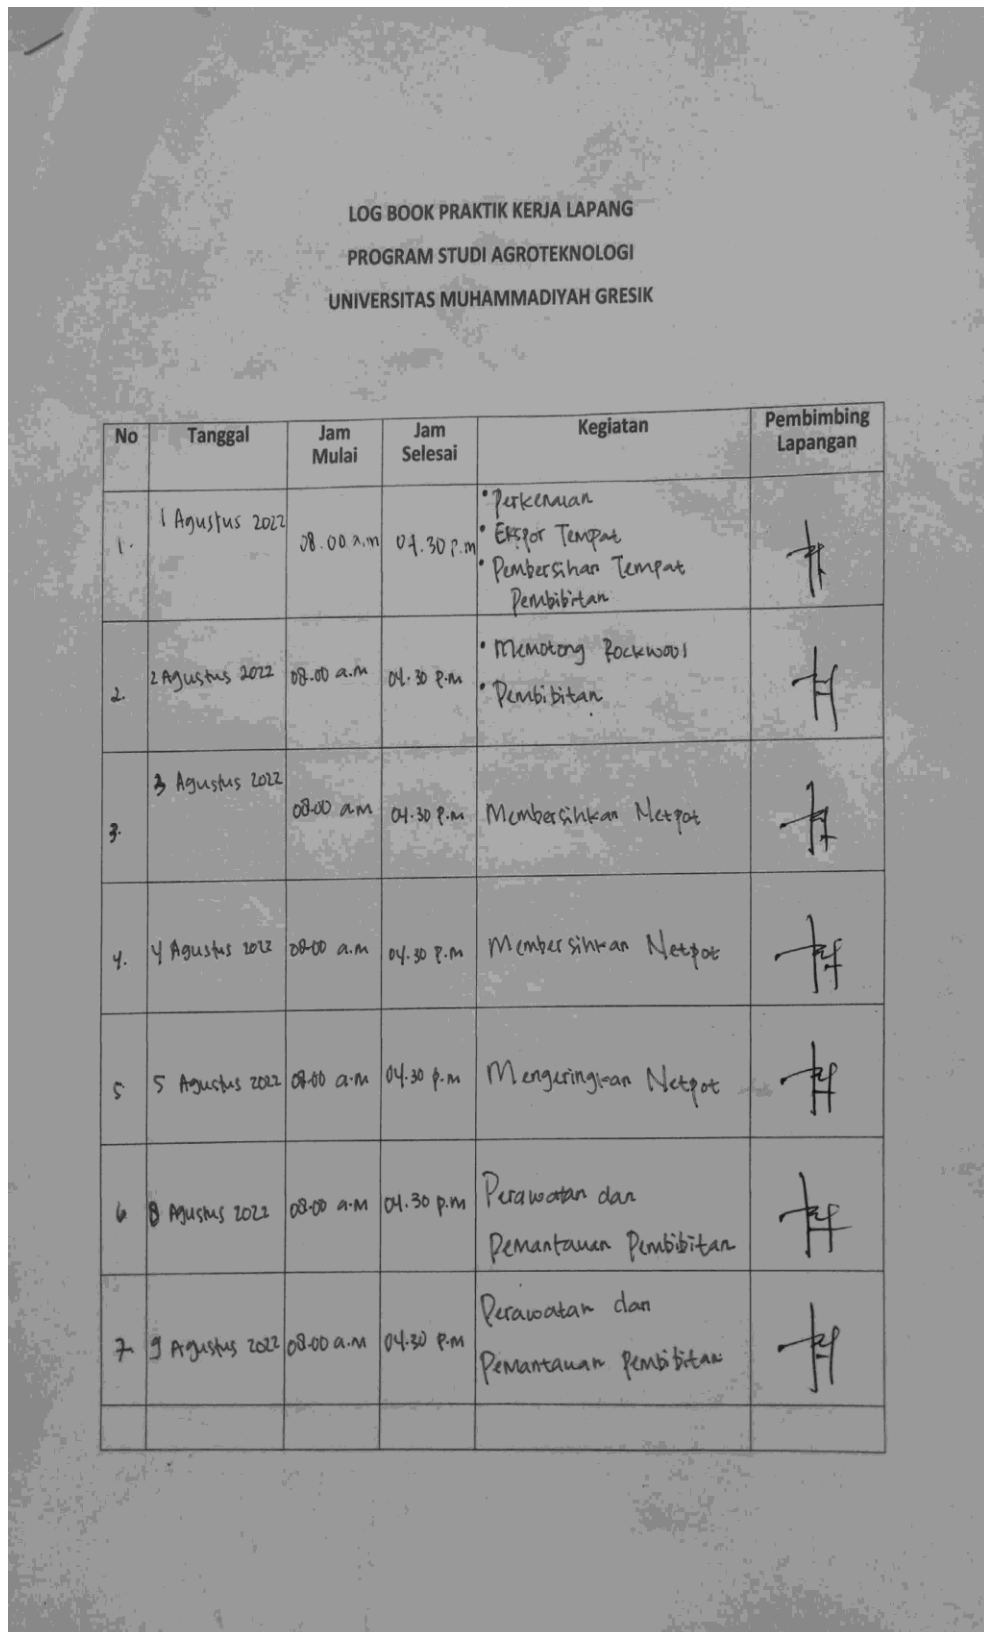 LOG BOOK PRAKTIK KERJA LAPANG
PROGRAM STUDI AGROTEKNOLOGI
UNIVERSITAS MUHAMMADIYAH GRESIK
No Tanggal Jam Mulai Jam Selesai Kegiatan Pembimbing Lapangan
1. 1 Agustus 2022 08.00 a.m 04.30 p.m • Perkenalan
• Ekspor Tempat
• Pembersihan Tempat
Pembibitan
2. 2 Agustus 2022 08.00 a.m 04.30 p.m • Memotong Rockwool
• Pembibitan
3. 3 Agustus 2022 08.00 a.m 04.30 p.m Membersihkan Netpot
4. 4 Agustus 2022 08.00 a.m 04.30 p.m Membersihkan Netpot
5 5 Agustus 2022 08.00 a.m 04.30 p.m Mengeringkan Netpot
6 8 Agustus 2022 08.00 a.m 04.30 p.m Perawatan dan
Pemantauan Pembibitan
7. 9 Agustus 2022 08.00 a.m 04.30 p.m Perawatan dan
Pemantauan Pembibitan